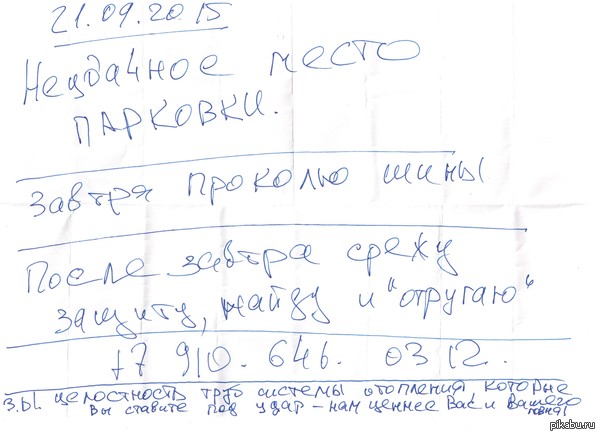 21.09.2015
Неудачное место
ПАРКОВКИ.
Завтря проколю шины
После завтра срежу
защиту, найду и "отругаю"
+7 910. 646. 03 12.
З.Ы. целостность труб системы отопления которые
Вы ставите под удар – нам ценнее Вас и Вашего
пикабу.ru